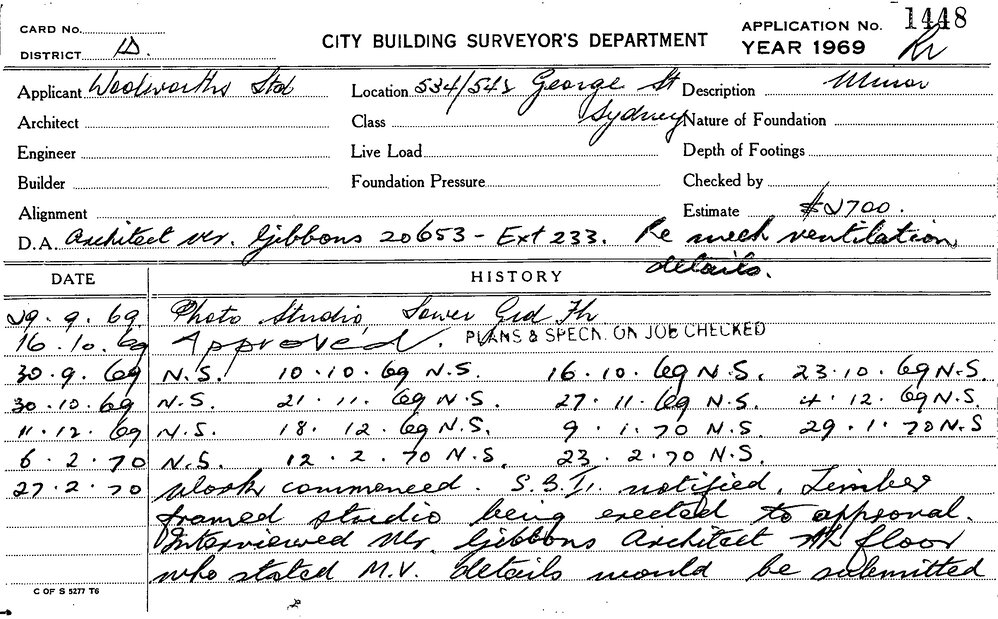 CARD No.
APPLICATION No. 1448
DISTRICT
CITY BUILDING SURVEYOR'S DEPARTMENT
YEAR 1969
Applicant Woolworths Ltd
Location 534/542 George St Sydney
Description Minor
Architect
Class
Nature of Foundation
Engineer
Live Load
Depth of Footings
Builder
Foundation Pressure
Checked by
Alignment
Estimate $2700.
D.A. Architect Mr. Gibbons 20653 - Ext 233. Re mech ventilation
details.
DATE HISTORY
29.9.69 Photo Studio, Lower Grd Flr
16.10.69 Approved. PLANS & SPECN. ON JOB CHECKED
30.9.69 N.S. 10.10.69 N.S. 16.10.69 N.S. 23.10.69 N.S.
30.10.69 N.S. 21.11.69 N.S. 27.11.69 N.S. 4.12.69 N.S.
11.12.69 N.S. 18.12.69 N.S. 9.1.70 N.S. 29.1.70 N.S
6.2.70 N.S. 12.2.70 N.S. 23.2.70 N.S.
27.2.70 Work commenced. S.B.I. notified. Timber
framed studio being erected to approval.
Interviewed Mr. Gibbons Architect floor
who stated M.V. details would be submitted
C OF S 5277 T6